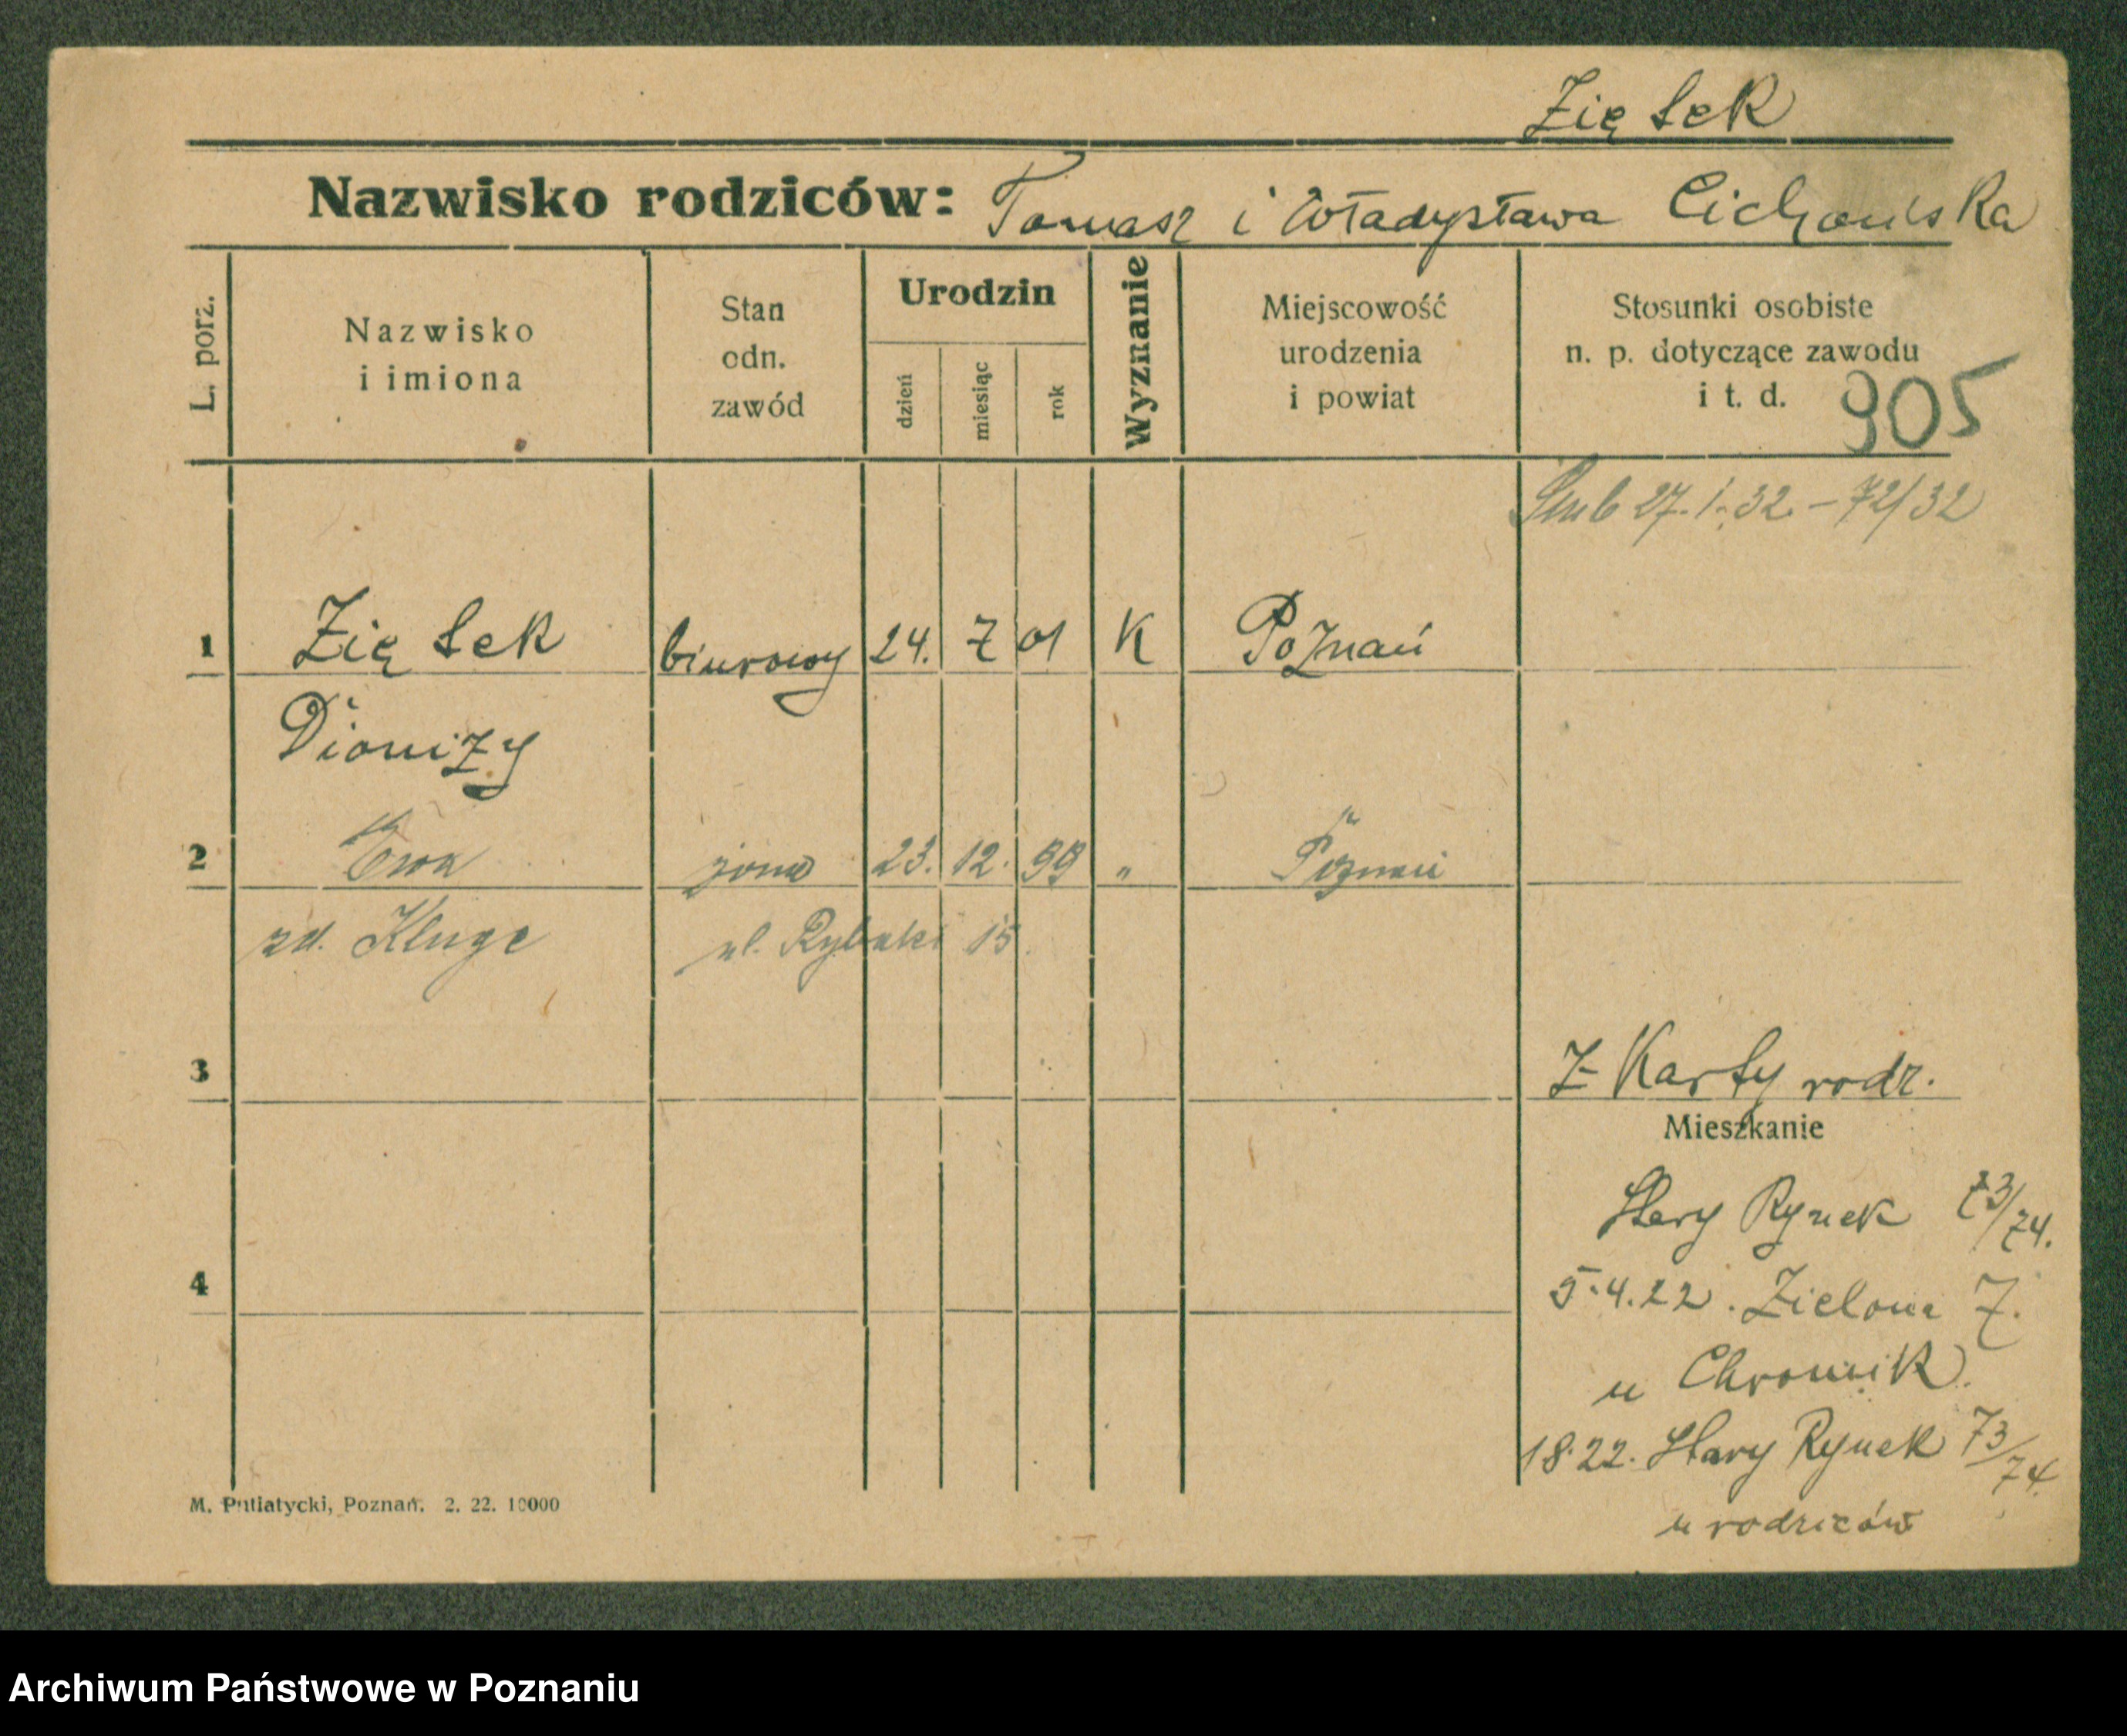 Ziętek
Nazwisko rodziców: Tomasz i Władysława Cichońska
L. porz.
Nazwisko
i imiona
Stan
odn.
zawód
Urodzin
dzień
miesiąc
rok
Wyznanie
Miejscowość
urodzenia
i powiat
Stosunki osobiste
n. p. dotyczące zawodu
i t. d.
905
Ślub 27.1.32. – 72/32
1 Ziętek biurowy 24. 7 01 K Poznań
Dionizy
2 Ewa żona 23. 12. 99 " Poznań
zd. Kluge ul. Rybaki 15.
3 Z Karty rodz.
Mieszkanie
Stary Rynek 73/74.
4 5.4.22. Zielona 7.
u Chromik.
18.22. Stary Rynek 73/74
u rodziców
M. Putiatycki, Poznań. 2. 22. 10000
Archiwum Państwowe w Poznaniu